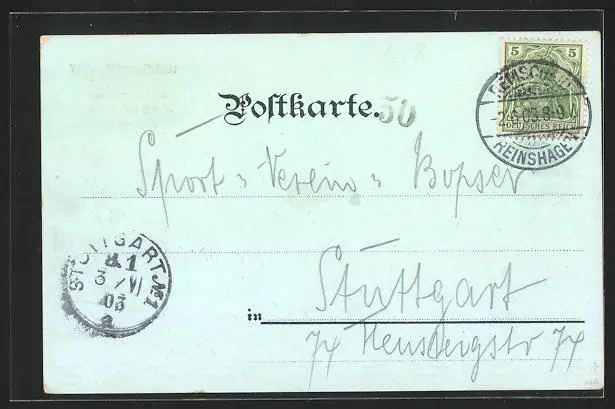 5 5
DEUTSCHES REICH
REMSCHEID
-2.6.03.8-9
REINSHAGEN
Postkarte.
50
Sport = Verein = Bopser
Stuttgart
in
STUTTGART No 1
3/VI
03